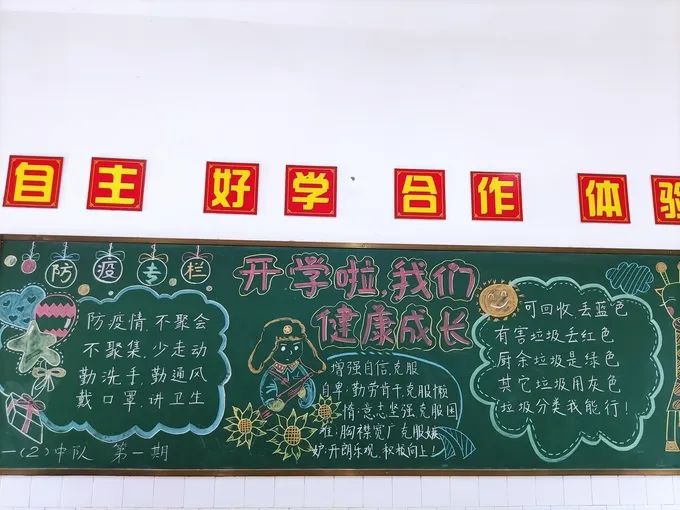 自主 好学 合作 体验
防疫专栏
防疫情,不聚会
不聚集,少走动
勤洗手,勤通风
戴口罩,讲卫生
一(2)中队 第一期
开学啦,我们
健康成长
增强自信,克服
自卑;勤劳肯干,克服懒
情;意志坚强克服困
难;胸襟宽广克服嫉
妒;开朗乐观,积极向上!
可回收,丢蓝色
有害垃圾丢红色
厨余垃圾是绿色
其它垃圾用灰色
垃圾分类我能行!